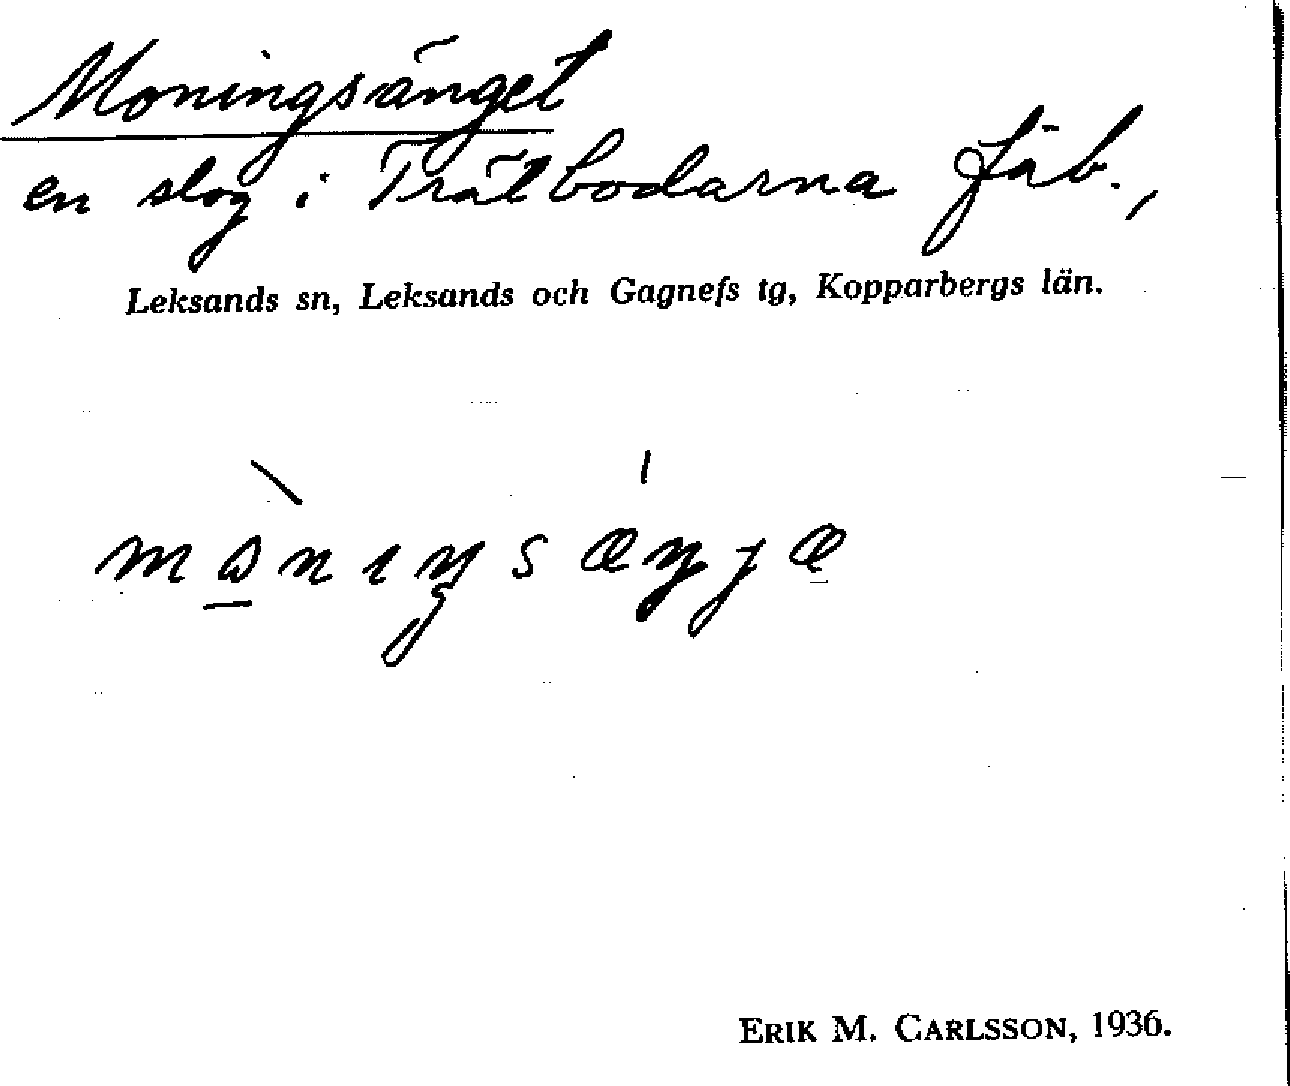 Moningsänget
en slog i Trätbodarna fäb.,
Leksands sn, Leksands och Gagnefs tg, Kopparbergs län.
ERIK M. CARLSSON, 1936.